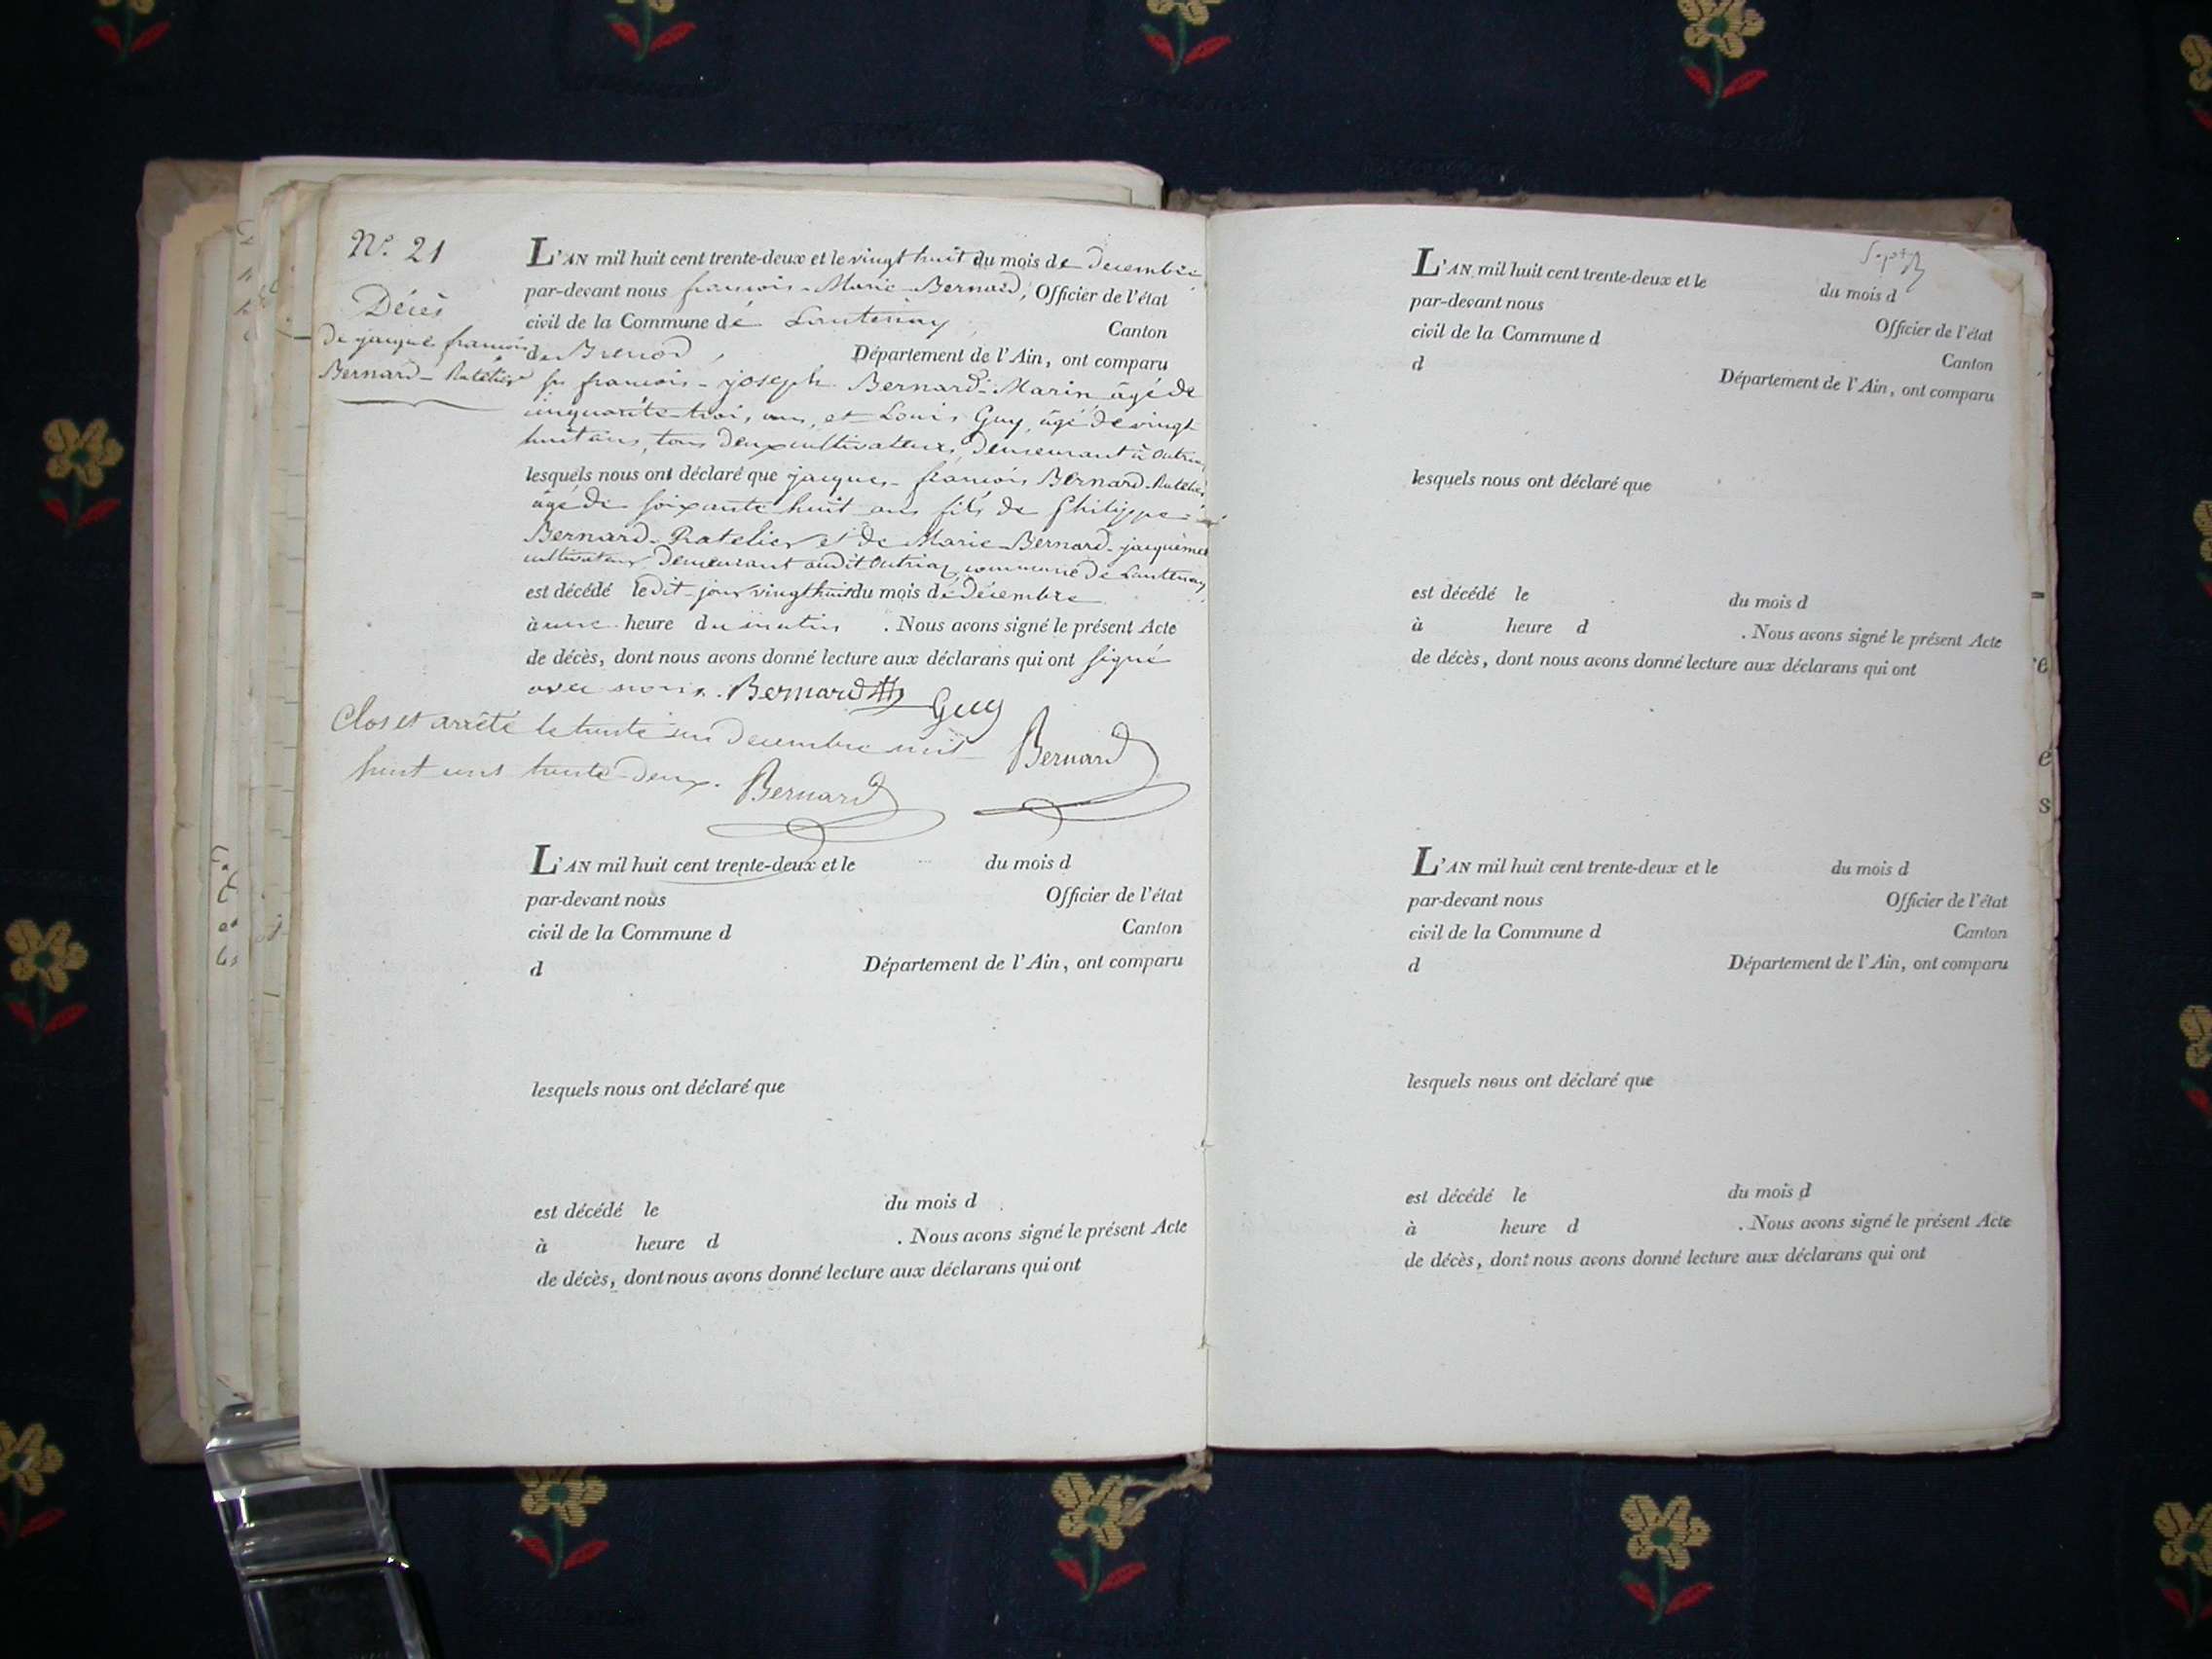 N.° 21
Décès
de jacques françois
Bernard-Ratelier
L'AN mil huit cent trente-deux et le vingt huit du mois de decembre
par-devant nous françois-Marie-Bernard, Officier de l'état
civil de la Commune de Lantenay, Canton
de Brenod, Département de l'Ain, ont comparu
françois-joseph Bernard-Marin âgé de
cinquante-trois ans, et Louis Guy, âgé de vingt
huit ans, tous deux cultivateurs, demeurant à outriaz,
lesquels nous ont déclaré que jacques-françois Bernard-Ratelier
âgé de soixante huit ans fils de Philippe
Bernard-Ratelier et de Marie-Bernard-jacquemet
cultivateur demeurant audit outriaz commune de Lantenay,
est décédé le dit-jour vingt huit du mois de décembre
à une heure du matin. Nous avons signé le présent Acte
de décès, dont nous avons donné lecture aux déclarans qui ont signé
avec nous. Bernard Guy
Clos et arrêté le trente un decembre mil Bernard
huit cent trente-deux. Bernard
L'AN mil huit cent trente-deux et le du mois d
par-devant nous Officier de l'état
civil de la Commune d Canton
d Département de l'Ain, ont comparu
lesquels nous ont déclaré que
est décédé le du mois d
à heure d . Nous avons signé le présent Acte
de décès, dont nous avons donné lecture aux déclarans qui ont
L'AN mil huit cent trente-deux et le du mois d
par-devant nous Officier de l'état
civil de la Commune d Canton
d Département de l'Ain, ont comparu
lesquels nous ont déclaré que
est décédé le du mois d
à heure d . Nous avons signé le présent Acte
de décès, dont nous avons donné lecture aux déclarans qui ont
L'AN mil huit cent trente-deux et le du mois d
par-devant nous Officier de l'état
civil de la Commune d Canton
d Département de l'Ain, ont comparu
lesquels nous ont déclaré que
est décédé le du mois d
à heure d . Nous avons signé le présent Acte
de décès, dont nous avons donné lecture aux déclarans qui ont